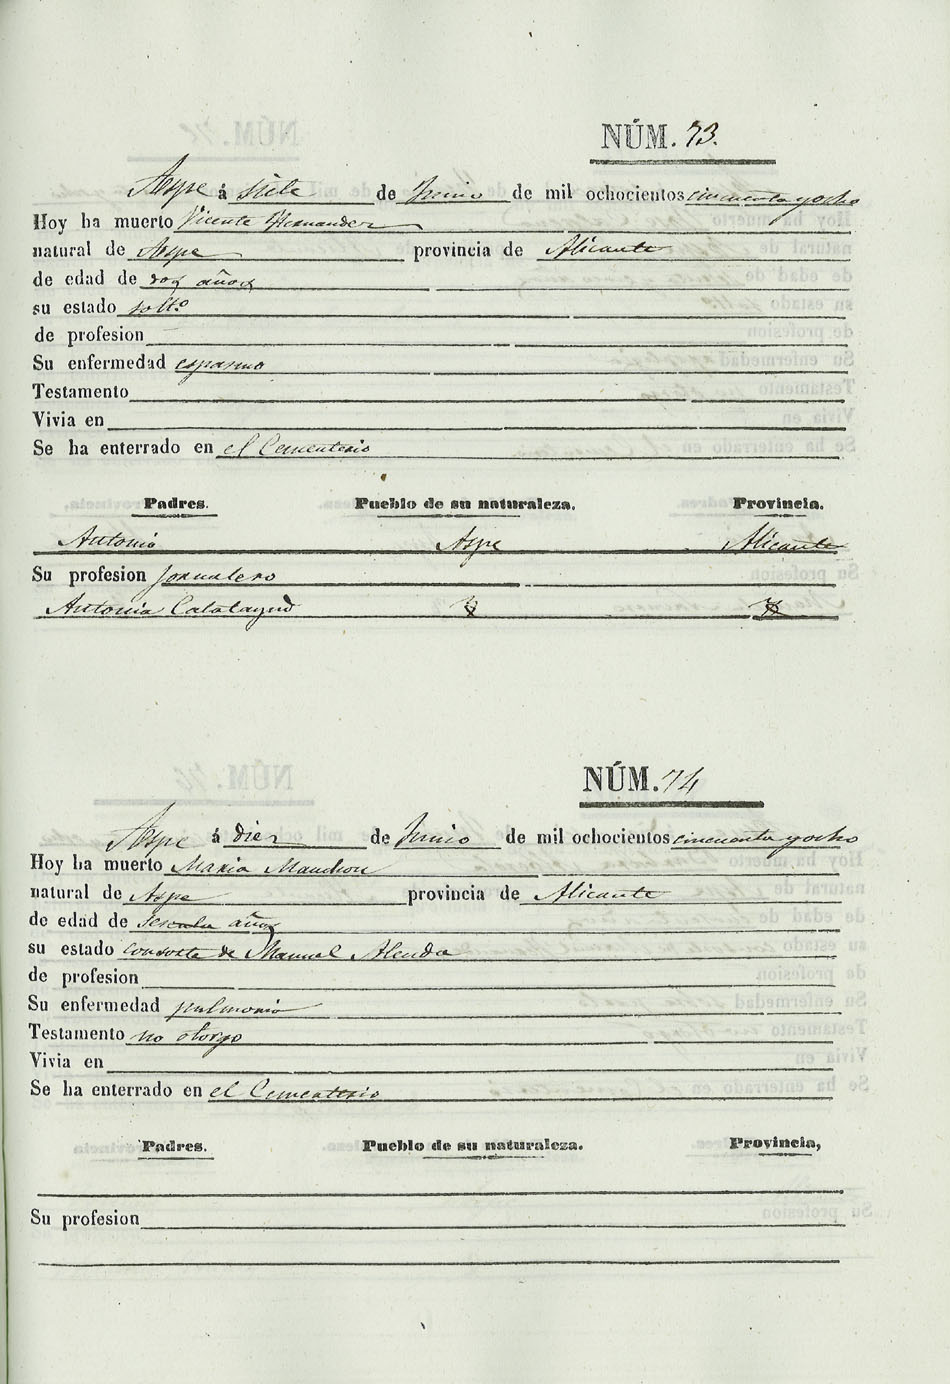 NÚM. 73.
Aspe á siete de Junio de mil ochocientos cincuenta y ocho
Hoy ha muerto Vicente Hernandez
natural de Aspe provincia de Alicante
de edad de dos años
su estado solto
de profesion
Su enfermedad espasmo
Testamento
Vivia en
Se ha enterrado en el Cementerio
Padres. Pueblo de su naturaleza. Provincia.
Antonio Aspe Alicante
Su profesion jornalero
Antonia Calatayud
NÚM. 74
Aspe á diez de Junio de mil ochocientos cincuenta y ocho
Hoy ha muerto Maria Manchon
natural de Aspe provincia de Alicante
de edad de años
su estado consorte de Manuel
de profesion
Su enfermedad pulmonia
Testamento no otorgo
Vivia en
Se ha enterrado en el Cementerio
Padres. Pueblo de su naturaleza. Provincia,
Su profesion